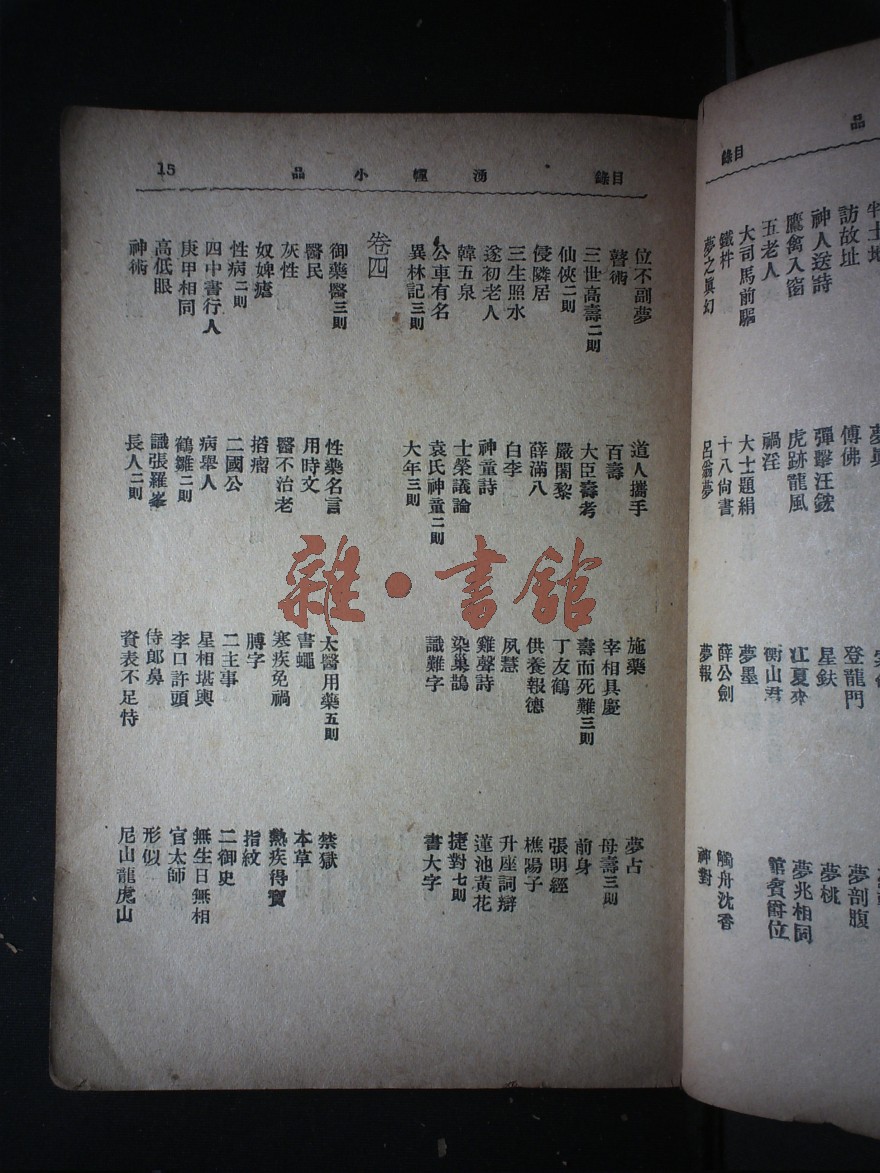 品
目錄
訪故址 傅佛 登龍門
神人送詩 彈擊汪鋐 星鈇 夢剖腹
鷹禽入窗 虎跡龍風 江夏來 夢桃
五老人 禍淫 衡山君 夢兆相同
大司馬前驅 大士題絹 夢墨 館賓爵位
鐵杵 十八尙書 薛公劍 觸舟沈香
夢之眞幻 呂翁夢 夢報 神對
目錄 湧幢小品 15
位不副夢 道人攜手 施藥 夢占
瞽術 百壽 宰相具慶 母壽三則
三世高壽二則 大臣壽考 壽而死難三則 前身
仙俠二則 嚴闍黎 丁友鶴 張明經
侵隣居 薛滿八 供養報德 樵陽子
三生照水 白李 夙慧 升座詞辯
遂初老人 神童詩 雞聲詩 蓮池黃花
韓五泉 士榮議論 染巢鵲 捷對七則
公車有名 袁氏神童二則 識難字 書大字
異林記三則 大年三則
卷四
御藥醫三則 性藥名言 太醫用藥五則 禁獄
醫民 用時文 書蠅 本草
灰性 醫不治老 寒疾免禍 熱疾得寶
奴婢瘧 搯瘤 膊字 指紋
性病二則 二國公 二主事 二御史
四中書行人 病舉人 星相堪輿 無生日無相
庚甲相同 鶴雛二則 李口許頭 官太師
高低眼 識張羅峯 侍郎鼻 形似
神術 長人二則 資表不足恃 尼山龍虎山
雜·書館